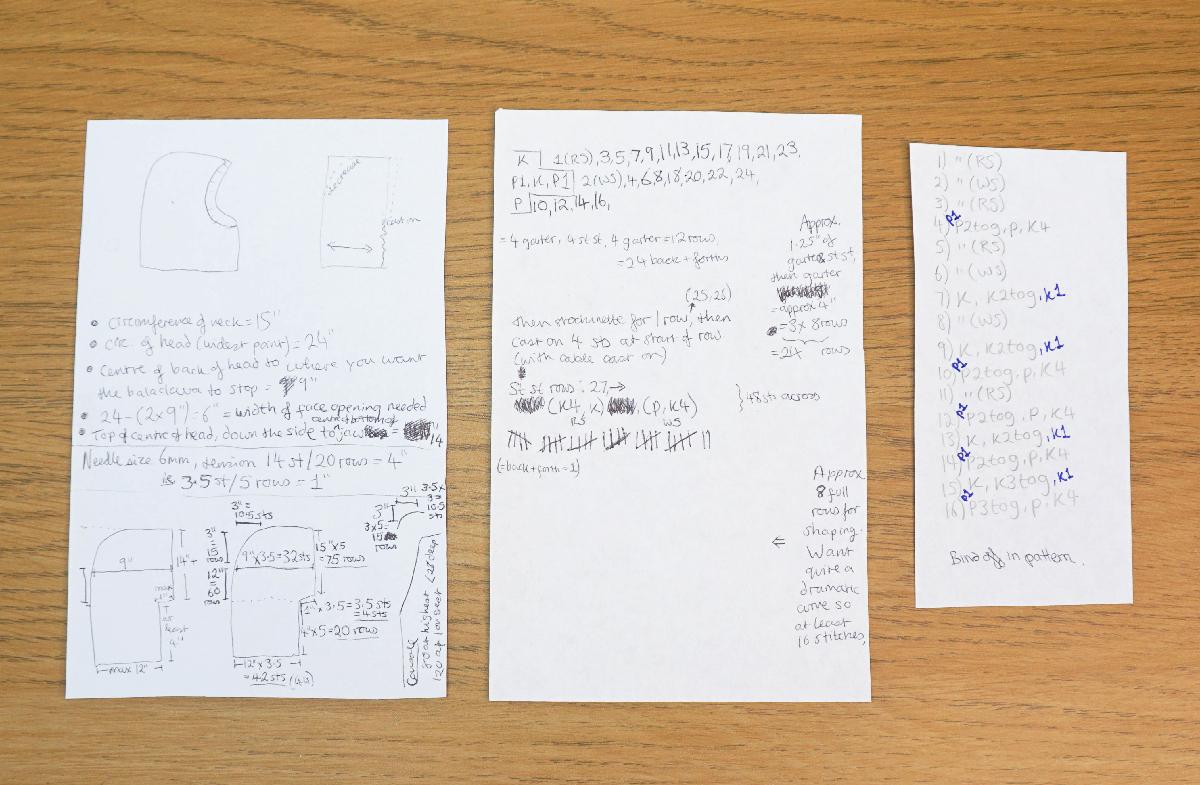 decrease
cast on
• Circumference of neck = 15"
• Circ. of head (widest point) = 24"
• Centre of back of head to where you want
the balaclava to stop = 9"
• 24 - (2x9") = 6" = width of face opening needed
centre bottom of
• Top of centre of head, down the side to jaw = 14"
Needle size 6mm, tension 14 st/20 rows = 4"
is 3.5 st/5 rows = 1"
3" =
10.5 sts
3"
3.5 x
3 =
10.5
sts
3"
3x5=
15
rows
9"
3"
=
15
rows
14"+
12"
=
60
rows
9"x3.5=32sts
15"x5
=75 rows
max
1"
at
least
4"
1" x 3.5 = 3.5 sts
= 4 sts
4"x5=20 rows
max 12"
12" x 3.5
= 42 sts
K 1(RS),3,5,7,9,11,13,15,17,19,21,23.
P1,K,P1 2(WS),4,6,8,18,20,22,24,
P 10,12,14,16,
= 4 garter, 4 st st, 4 garter = 12 rows,
= 24 back + forths
Approx.
1.25" of
garter & st st,
then garter
= approx 4"
= 3x 8 rows
= 24 rows
(25,26)
then stockinette for 1 row, then
cast on 4 sts at start of row
(with cable cast on)
St st rows: 27→
(K4, K) (P, K4)
RS WS
} 48 sts across
(=back+forth=1)
Approx
8 full
rows for
shaping.
⇐ Want
quite a
dramatic
curve so
at least
16 stitches,
1) " (RS)
2) " (WS)
3) " (RS)
P1
4) P2tog, P, K4
5) " (RS)
6) " (WS)
7) K, K2tog, K1
8) " (WS)
9) K, K2tog, K1
P1
10) P2tog, P, K4
11) " (RS)
P1
12) P2tog, P, K4
13) K, K2tog, K1
P1
14) P2tog, P, K4
15) K, K3tog, K1
P1
16) P3tog, P, K4
Bind off in pattern.